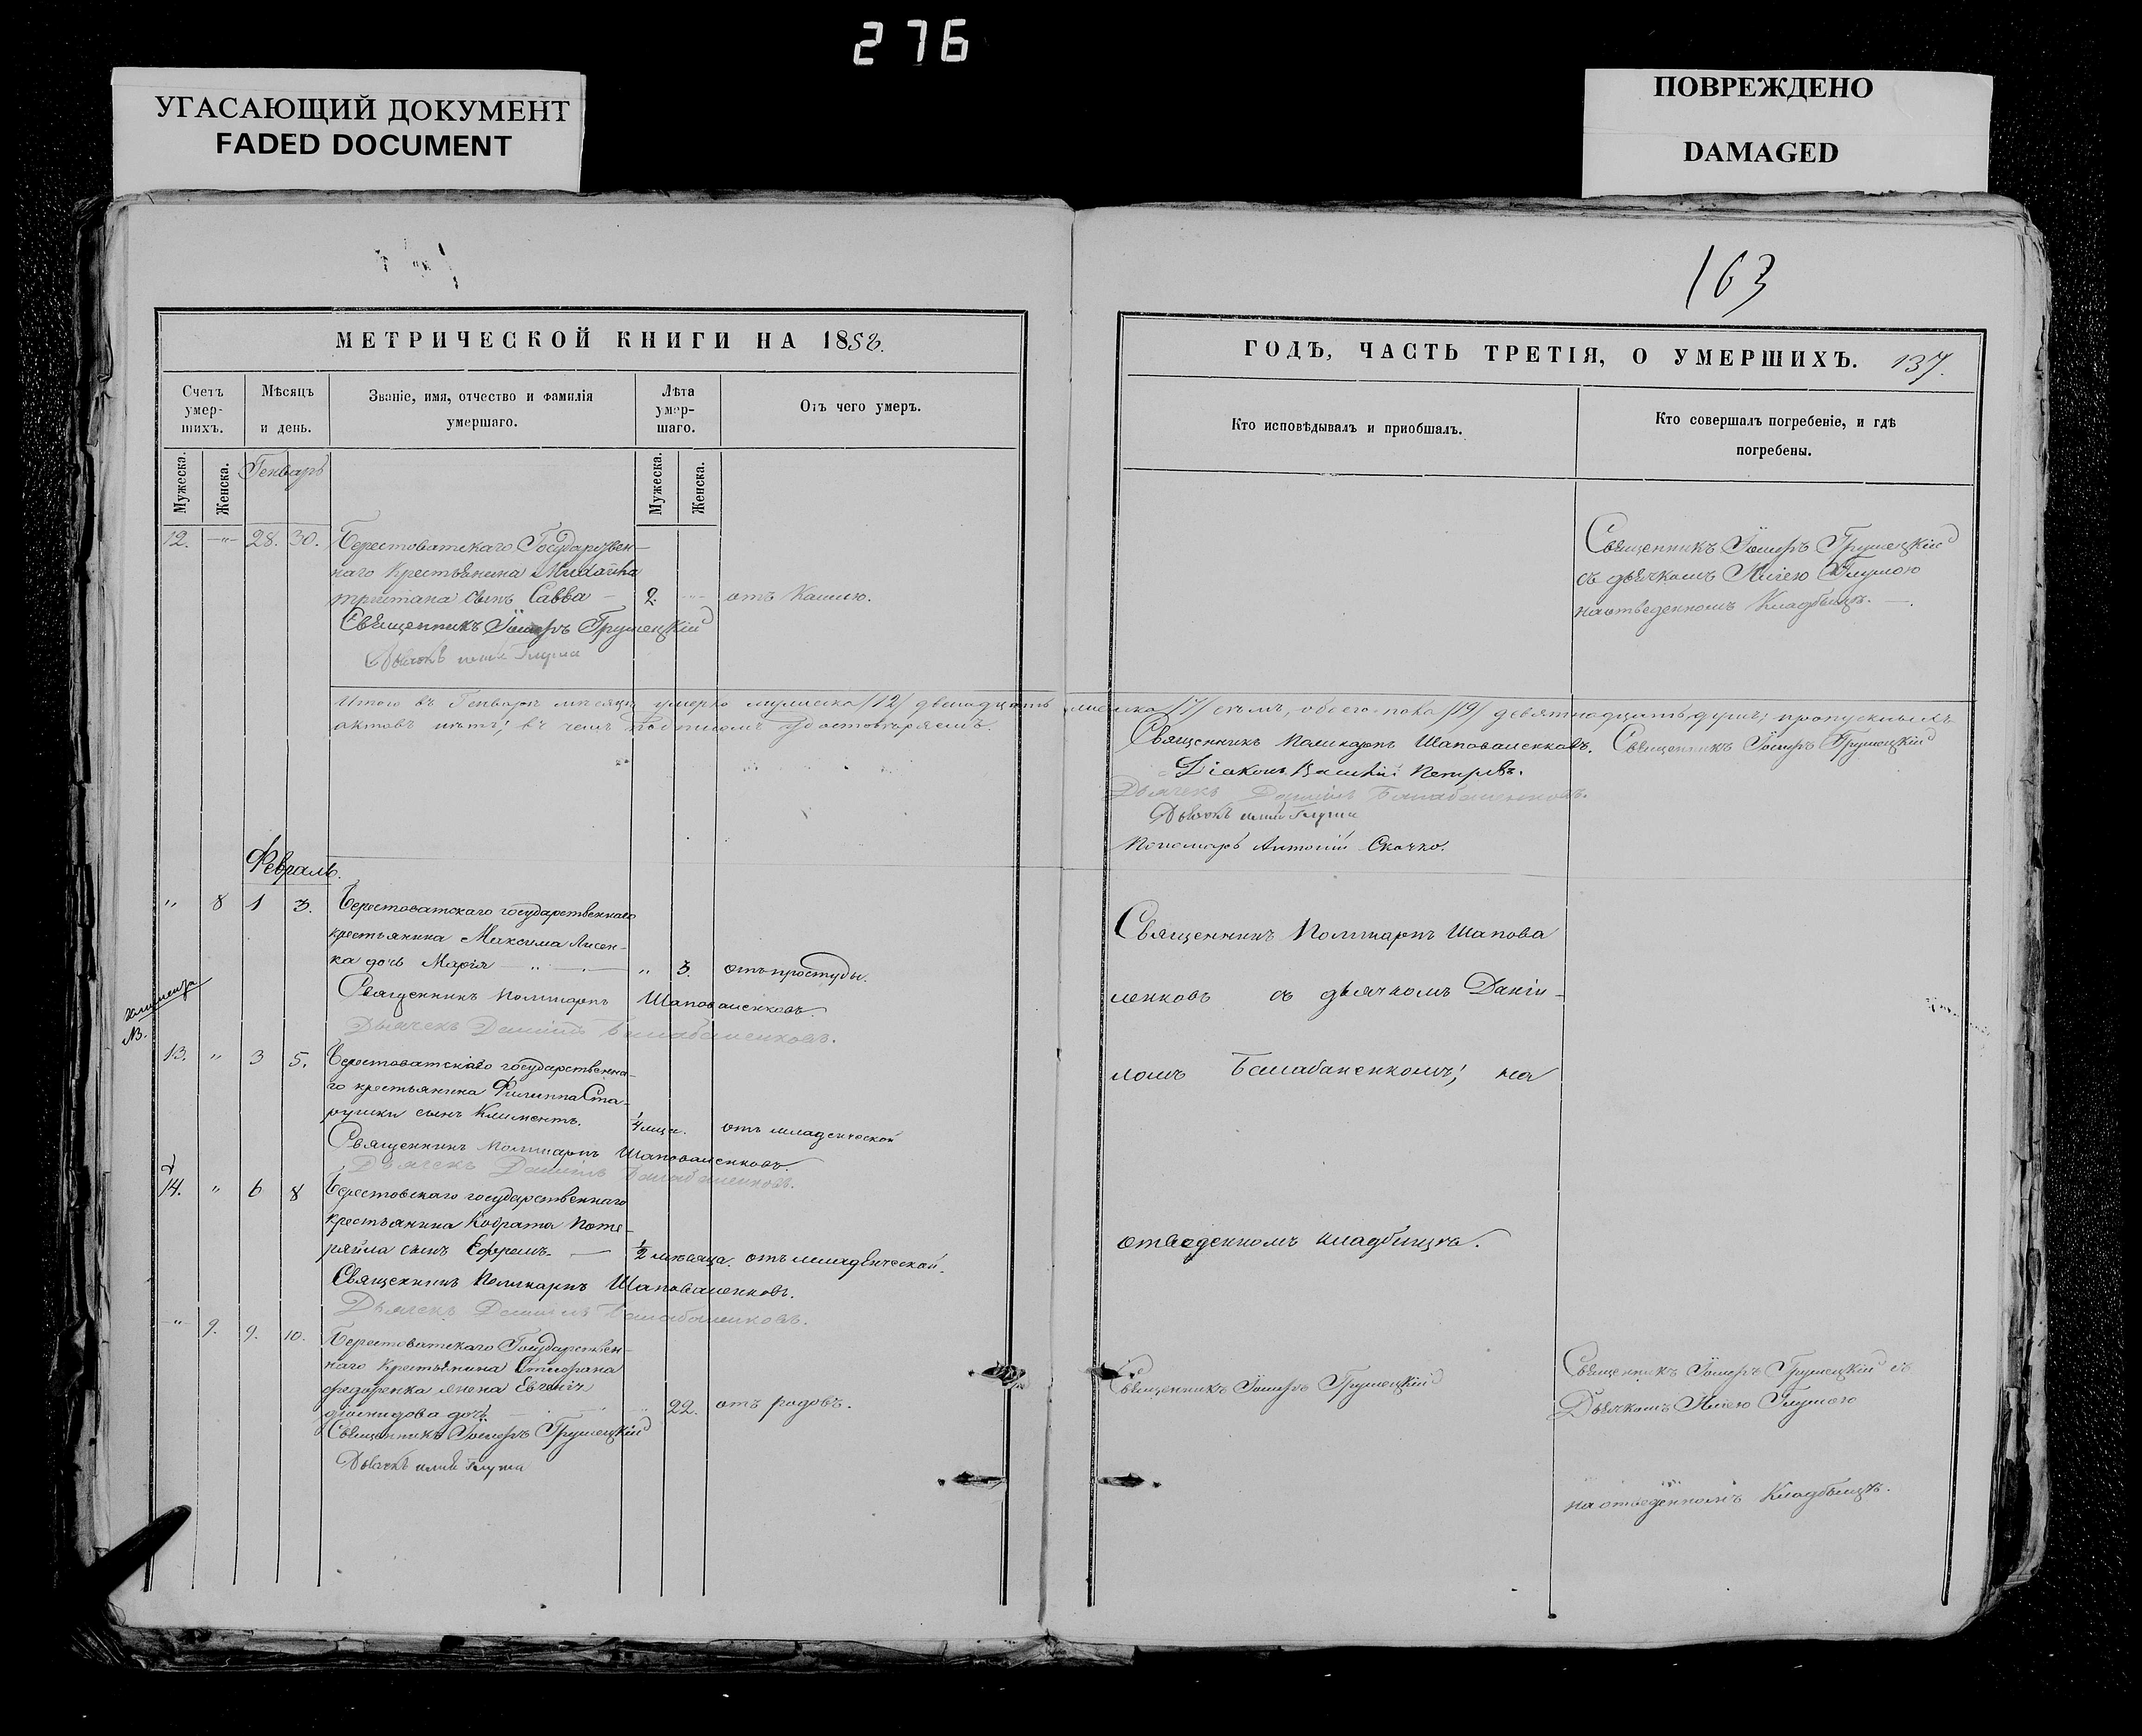 276
УГАСАЮЩИЙ ДОКУМЕНТ
FADED DOCUMENT
ПОВРЕЖДЕНО
DAMAGED
163
МЕТРИЧЕСКОЙ КНИГИ НА 1858.
Счетъ умер-шихъ.
Мѣсяцъ и день.
Званіе, имя, отчество и фамилія умершаго.
Лѣта умер-шаго.
Отъ чего умеръ.
Мужеска.
Женска.
Генварь
Мужеска.
Женска.
12. -"- 28. 30. Берестоватскаго Государствен-
наго Крестьянина
сынъ Савва — 2. отъ Кашлю.
Священникъ Іосифъ Грушецкій
Дьячокъ Глума
Итого въ Генварѣ мѣсяцѣ умерло мужеска /12/ двенадцать женска /7/ семь, обоего пола /19/ девятнадцать душъ; пропускныхъ
актовъ нѣтъ; въ чемъ подписомъ удостовѣряемъ.
Февраль.
" 8 1 3. Берестоватскаго государственнаго
крестьянина Максима Лисен-
ка дочь Марія — " — " 3. отъ простуды.
Священникъ Поликарпъ Шаповаленковъ.
Дьячекъ Даніилъ Балабаненковъ.
Климента
№3.
13. " 3 5. Берестоватскаго государственна-
го крестьянина Филиппа Ста-
рушки сынъ Климентъ. отъ младенческой
Священникъ Поликарпъ Шаповаленковъ.
Дьячекъ Даніилъ Балабаненковъ.
14. " 6 8 Берестовскаго государственнаго
крестьянина Кодрата Поте-
ряйла сынъ Ефремъ. — ½ мѣсяца. отъ младенческой.
Священникъ Поликарпъ Шаповаленковъ.
Дьячекъ Даніилъ Балабаненковъ.
-"- 9. 9. 10. Берестоватскаго Государствен-
наго Крестьянина Стефана
Федоренка жена Евгенія
дочь 22. отъ родовъ.
Священникъ Іосифъ Грушецкій
Дьячокъ Глума
ГОДЪ, ЧАСТЬ ТРЕТІЯ, О УМЕРШИХЪ. 137.
Кто исповѣдывалъ и приобщалъ.
Кто совершалъ погребеніе, и гдѣ
погребены.
Священникъ Іосифъ Грушецкій
съ дьячкомъ Иліею Глумою
на отведенномъ Кладбищѣ. —.
Священникъ Поликарпъ Шаповаленковъ. Священникъ Іосифъ Грушецкій
Діаконъ Василій Петровъ.
Дьячекъ Даніилъ Балабаненковъ.
Дьячокъ Глума
Пономарь Антоній Скочко.
Священникъ Поликарпъ Шапова
ленковъ съ дьячкомъ Даніи-
ломъ Балабаненкомъ; на
отведенномъ кладбищѣ.
Священникъ Іосифъ Грушецкій
Священникъ Іосифъ Грушецкій съ
Дьячкомъ Иліею Глумою
на отведенномъ Кладбищѣ.